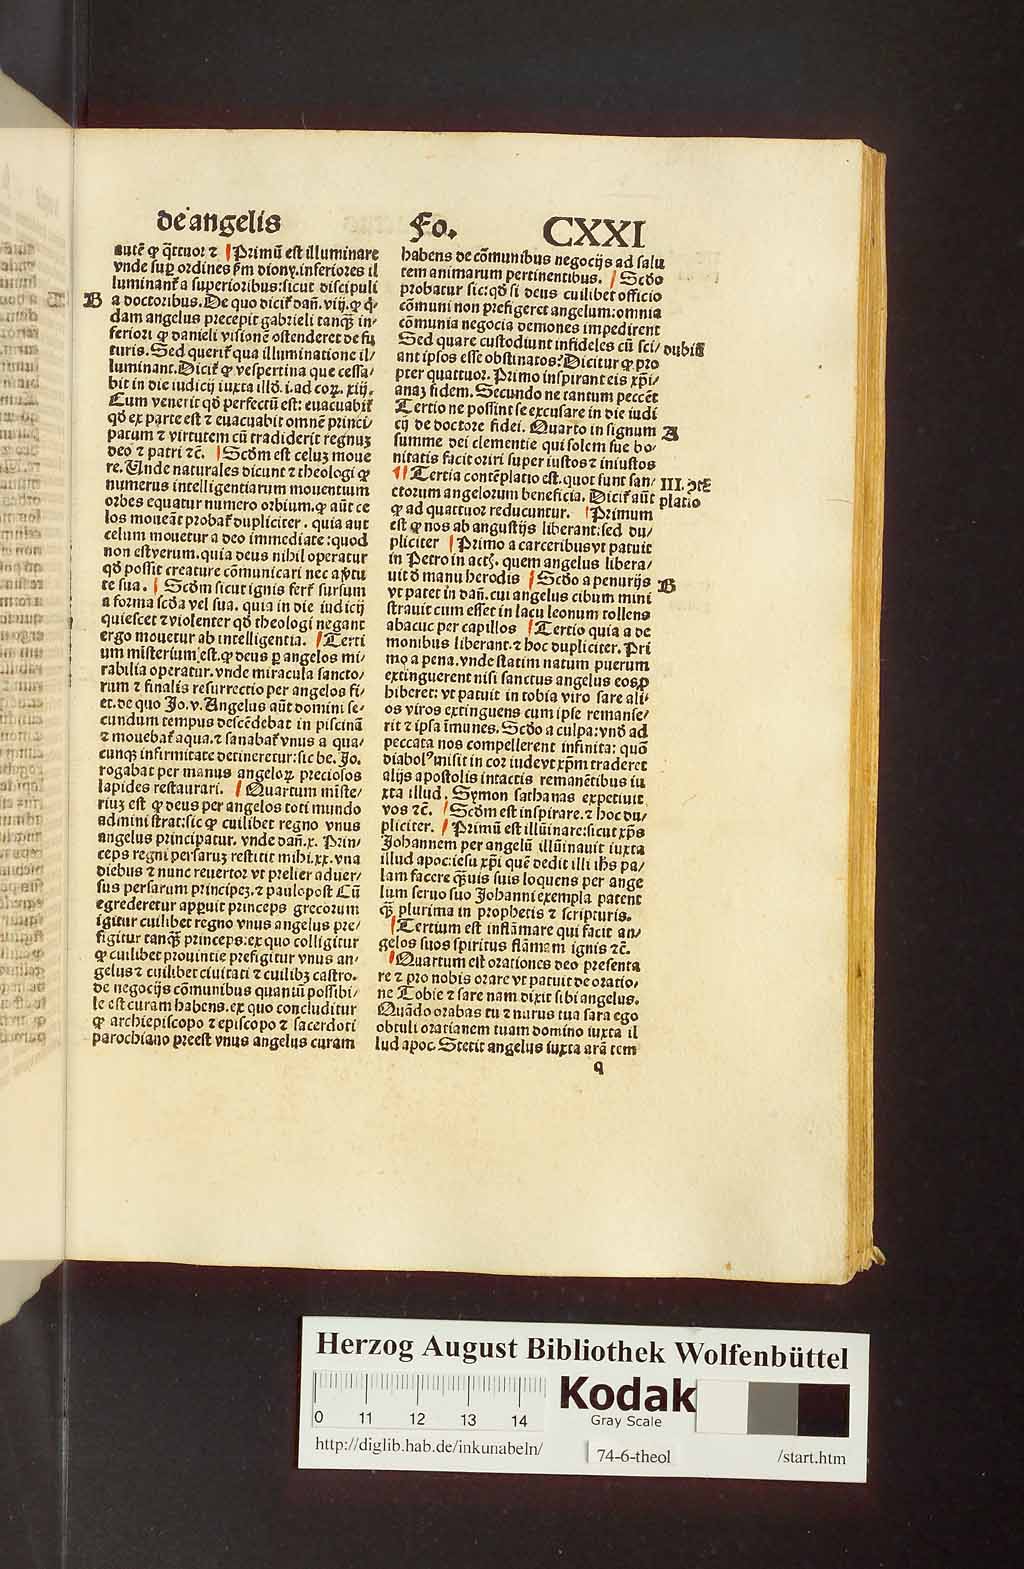 de angelis Fo. CXXI
autē ꝙ q̄ttuor ⁊ Primū est illuminare
vnde sup ordines ꝑm diony. inferiores il
luminant̃ a superioribus: sicut discipuli
B
a doctoribus. De quo dicit̃ dañ. viij. ꝙ q̇-
dam angelus precepit gabrieli tanq̄ in-
feriori ꝙ danieli visionē ostenderet de fu
turis. Sed querit̃ qua illuminatione il/
luminant. Dicit̃ ꝙ vespertina que cessa/
bit in die iudicij iuxta illđ. i. ad coꝝ. xiij.
Cum venerit qđ perfectū est: euacuabit̃
qđ ex parte est ⁊ euacuabit omnē princi/
patum ⁊ virtutem cū tradiderit regnuꝫ
deo ⁊ patri ⁊c̃. Scđm est celuꝫ moue
re. Unde naturales dicunt ⁊ theologi ꝙ
numerus intelligentiarum mouentium
orbes equatur numero orbium. ꝙ aūt ce
los moueāt probat̃ dupliciter. quia aut
celum mouetur a deo immediate: quod
non est verum. quia deus nihil operatur
qđ possit creature cōmunicari nec a ꝟtu
te sua. Scđm sicut ignis fert̃ sursum
a forma scđa vel sua. quia in die iudicij
quiescet ⁊ violenter qđ theologi negant
ergo mouetur ab intelligentia. Terti
um misterium est. ꝙ deus ꝑ angelos mi/
rabilia operatur. vnde miracula sancto/
rum ⁊ finalis resurrectio per angelos fi/
et. de quo Jo. v. Angelus aūt domini se/
cundum tempus descēdebat in piscinā
⁊ mouebat̃ aqua. ⁊ sanabat̃ vnus a qua/
cunqꝫ infirmitate detineretur: sic be. Jo.
rogabat per manus angeloꝝ preciosos
lapides restaurari. Quartum miste/
riuꝫ est ꝙ deus per angelos toti mundo
administrat: sic ꝙ cuilibet regno vnus
angelus principatur. vnde dañ. x. Prin/
ceps regni persaruꝫ restitit mihi. xx. vna
diebus ⁊ nunc reuertor vt prelier aduer/
sus persarum principeꝫ. ⁊ paulopost Cū
egrederetur apꝑuit princeps grecorum
igitur cuilibet regno vnus angelus pre/
figitur tanq̄ princeps: ex quo colligitur
ꝙ cuilibet prouintie prefigitur vnus an-
gelus ⁊ cuilibet ciuitati ⁊ cuilibꝫ castro.
de negocijs cōmunibus quantū possibi/
le est curam habens. ex quo concluditur
ꝙ archiepiscopo ⁊ episcopo ⁊ sacerdoti
parochiano preest vnus angelus curam
habens de cōmunibus negocijs ad salu
tem animarum pertinentibus. Scđo
probatur sic: qđ si deus cuilibet officio
cōmuni non prefigeret angelum: omnia
cōmunia negocia demones impedirent
Sed quare custodiunt infideles cū sci/
dubiū
ant ipsos esse obstinatos? Dicitur ꝙ pro
pter quattuor. Primo inspirant eis xp̄i/
anaꝫ fidem. Secundo ne tantum peccēt
Tertio ne possint se excusare in die iudi
cij de doctore fidei. Quarto in signum
A
summe dei clementie qui solem sue bo/
nitatis facit oriri super iustos ⁊ iniustos
Tertia contēplatio est. quot sunt san/
III. ꝯtē
platio
ctorum angelorum beneficia. Dicit̃ aūt
ꝙ ad quattuor reducuntur. Primum
est ꝙ nos ab angustijs liberant: sed du/
pliciter Primo a carceribus vt patuit
in Petro in act̃. quem angelus libera/
uit đ manu herodis Scđo a penurijs
B
vt patet in dañ. cui angelus cibum mini
strauit cum esset in lacu leonum tollens
abacuc per capillos Tertio quia a de
monibus liberant. ⁊ hoc dupliciter. Pri
mo a pena. vnde statim natum puerum
extinguerent nisi sanctus angelus eos ꝓ
hiberet: vt patuit in tobia viro sare ali-
os viros extinguens cum ipse remanse/
rit ⁊ ipsa īmunes. Scđo a culpa: vnđ ad
peccata nos compellerent infinita: quō
diabolꝰ misit in cor iude vt xp̄m traderet
alijs apostolis intactis remanētibus iu
xta illud. Symon sathanas expetiuit
vos ⁊c̃. Scđm est inspirare. ⁊ hoc du/
pliciter. Primū est illūinare: sicut xp̄s
Johannem per angelū illūinauit iuxta
illud apoc: iesu xp̄i quē dedit illi ih̄s pa/
lam facere q̄uis suis loquens per ange
lum seruo suo Johanni exempla patent
q̄ plurima in prophetis ⁊ scripturis.
Tertium est inflāmare qui facit an/
gelos suos spiritus flāmam ignis ⁊c̃.
Quartum est orationes deo presenta
re ⁊ pro nobis orare vt patuit de oratio/
ne Tobie ⁊ sare nam dixit sibi angelus.
Quādo orabas tu ⁊ nurus tua sara ego
obtuli orationem tuam domino iuxta il
lud apoc. Stetit angelus iuxta arā tem
q
Herzog August Bibliothek Wolfenbüttel
0 11 12 13 14
Kodak
Gray Scale
http://diglib.hab.de/inkunabeln/ 74-6-theol /start.htm